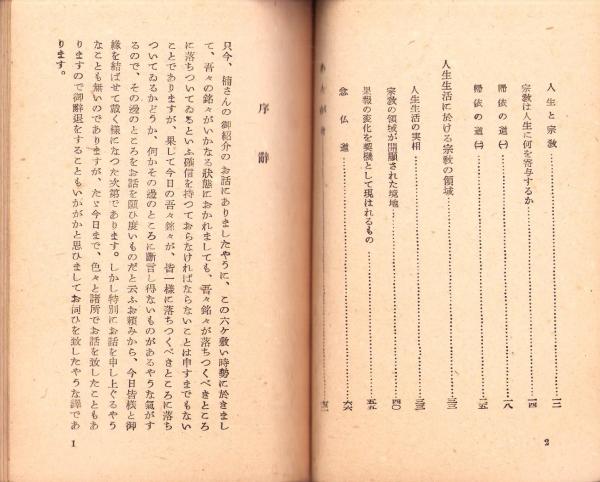 人生と宗教……一二
宗教は人生に何を寄与するか……一四
帰依の道(一)……一八
帰依の道(二)……一五
人生生活に於ける宗教の領域……二三
人生生活の実相……三三
宗教の領域が開顕された境地……四〇
果報の変化を契機として現はれるもの……五五
念仏道……六六
2
序辭
只今、楠さんの御紹介のお話にありましたやうに、この六ケ敷い時勢に於きまし
て、吾々の銘々がいかなる狀態におかれましても、吾々銘々が落ちつくべきところ
に落ちついてゐるといふ確信を持つておらなければならないことは申すまでもない
ことでありますが、果して今日の吾々銘々が、皆一様に落ちつくべきところに落ち
ついてゐるかどうか、何かその邊のところに斷言し得ないものがあるやうな氣がす
るので、その邊のところをお話を願ひ度いものだと云ふお頼みから、今日皆様と御
緣を結ばせて戴く様になつた次第であります。しかし特別にお話を申し上ぐるやう
なことも無いのでありますが、たゞ今日まで、色々と諸所でお話を致したこともあ
りますので御辭退をすることもいかがかと思ひましてお伺ひを致したやうな譯であ
ります。
1